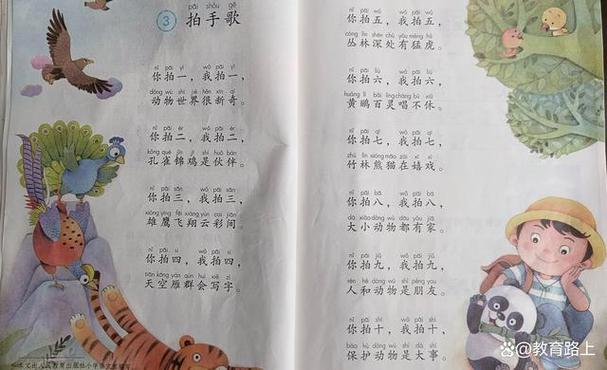 pāi shǒu gē
3 拍手歌
nǐ pāi yī wǒ pāi yī
你拍一，我拍一，
dòng wù shì jiè hěn xīn qí
动物世界很新奇。
nǐ pāi èr wǒ pāi èr
你拍二，我拍二，
kǒng què jǐn jī shì huǒ bàn
孔雀锦鸡是伙伴。
nǐ pāi sān wǒ pāi sān
你拍三，我拍三，
xióng yīng fēi xiáng yún cai jiān
雄鹰飞翔云彩间。
nǐ pāi sì wǒ pāi sì
你拍四，我拍四，
tiān kōng yàn qún huì xiě zì
天空雁群会写字。
nǐ pāi wǔ wǒ pāi wǔ
你拍五，我拍五，
cóng lín shēn chù yǒu měng hǔ
丛林深处有猛虎。
nǐ pāi liù wǒ pāi liù
你拍六，我拍六，
huáng lí bǎi líng chàng bù xiū
黄鹂百灵唱不休。
nǐ pāi qī wǒ pāi qī
你拍七，我拍七，
zhú lín xióng māo zài xī xì
竹林熊猫在嬉戏。
nǐ pāi bā wǒ pāi bā
你拍八，我拍八，
dà xiǎo dòng wù dōu yǒu jiā
大小动物都有家。
nǐ pāi jiǔ wǒ pāi jiǔ
你拍九，我拍九，
rén hé dòng wù shì péng yǒu
人和动物是朋友。
nǐ pāi shí wǒ pāi shí
你拍十，我拍十，
bǎo hù dòng wù shì dà shì
保护动物是大事。
@教育路上